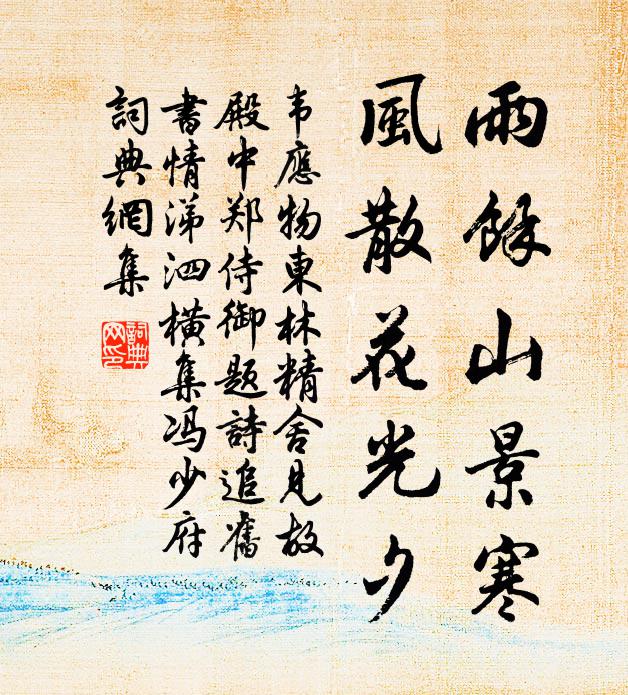 雨餘山景寒
風散花光夕
韦應物東林精舍見故
殿中郑侍御題詩追舊
書情涕泗橫集冯少府
詞典網集
詞典網印